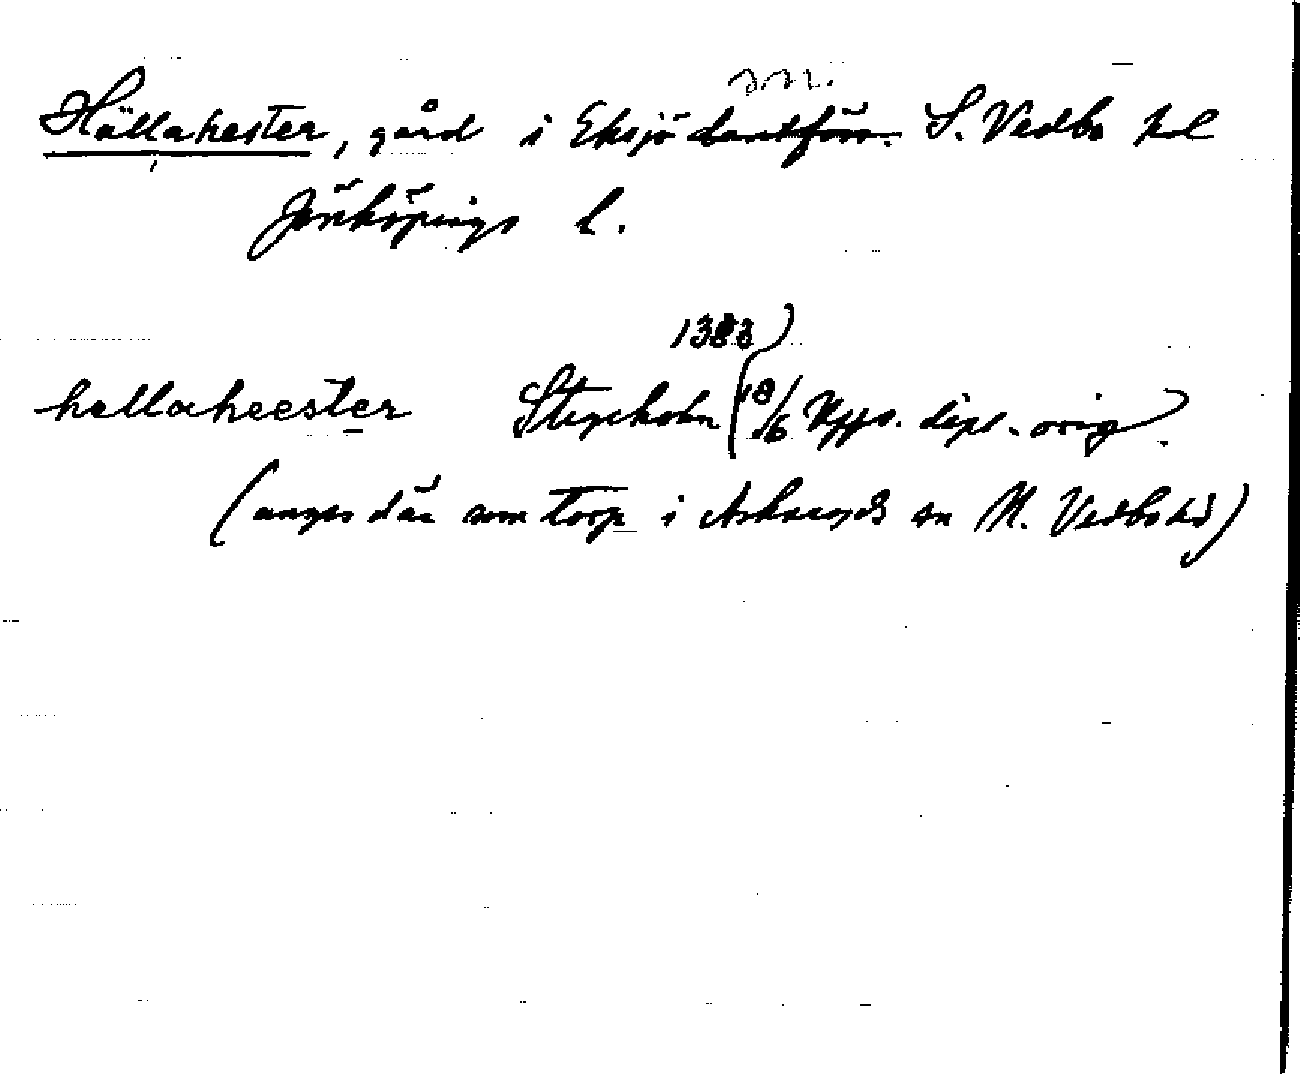 sn.
Hällahester, gård i Eksjö landsförs. S. Vedbo hd
Jönköpings l.
1383
hallaheester Stegeholm (18/6 Upps. dipl. orig)
(anges där som torp i Askeryds sn N. Vedbo hd)